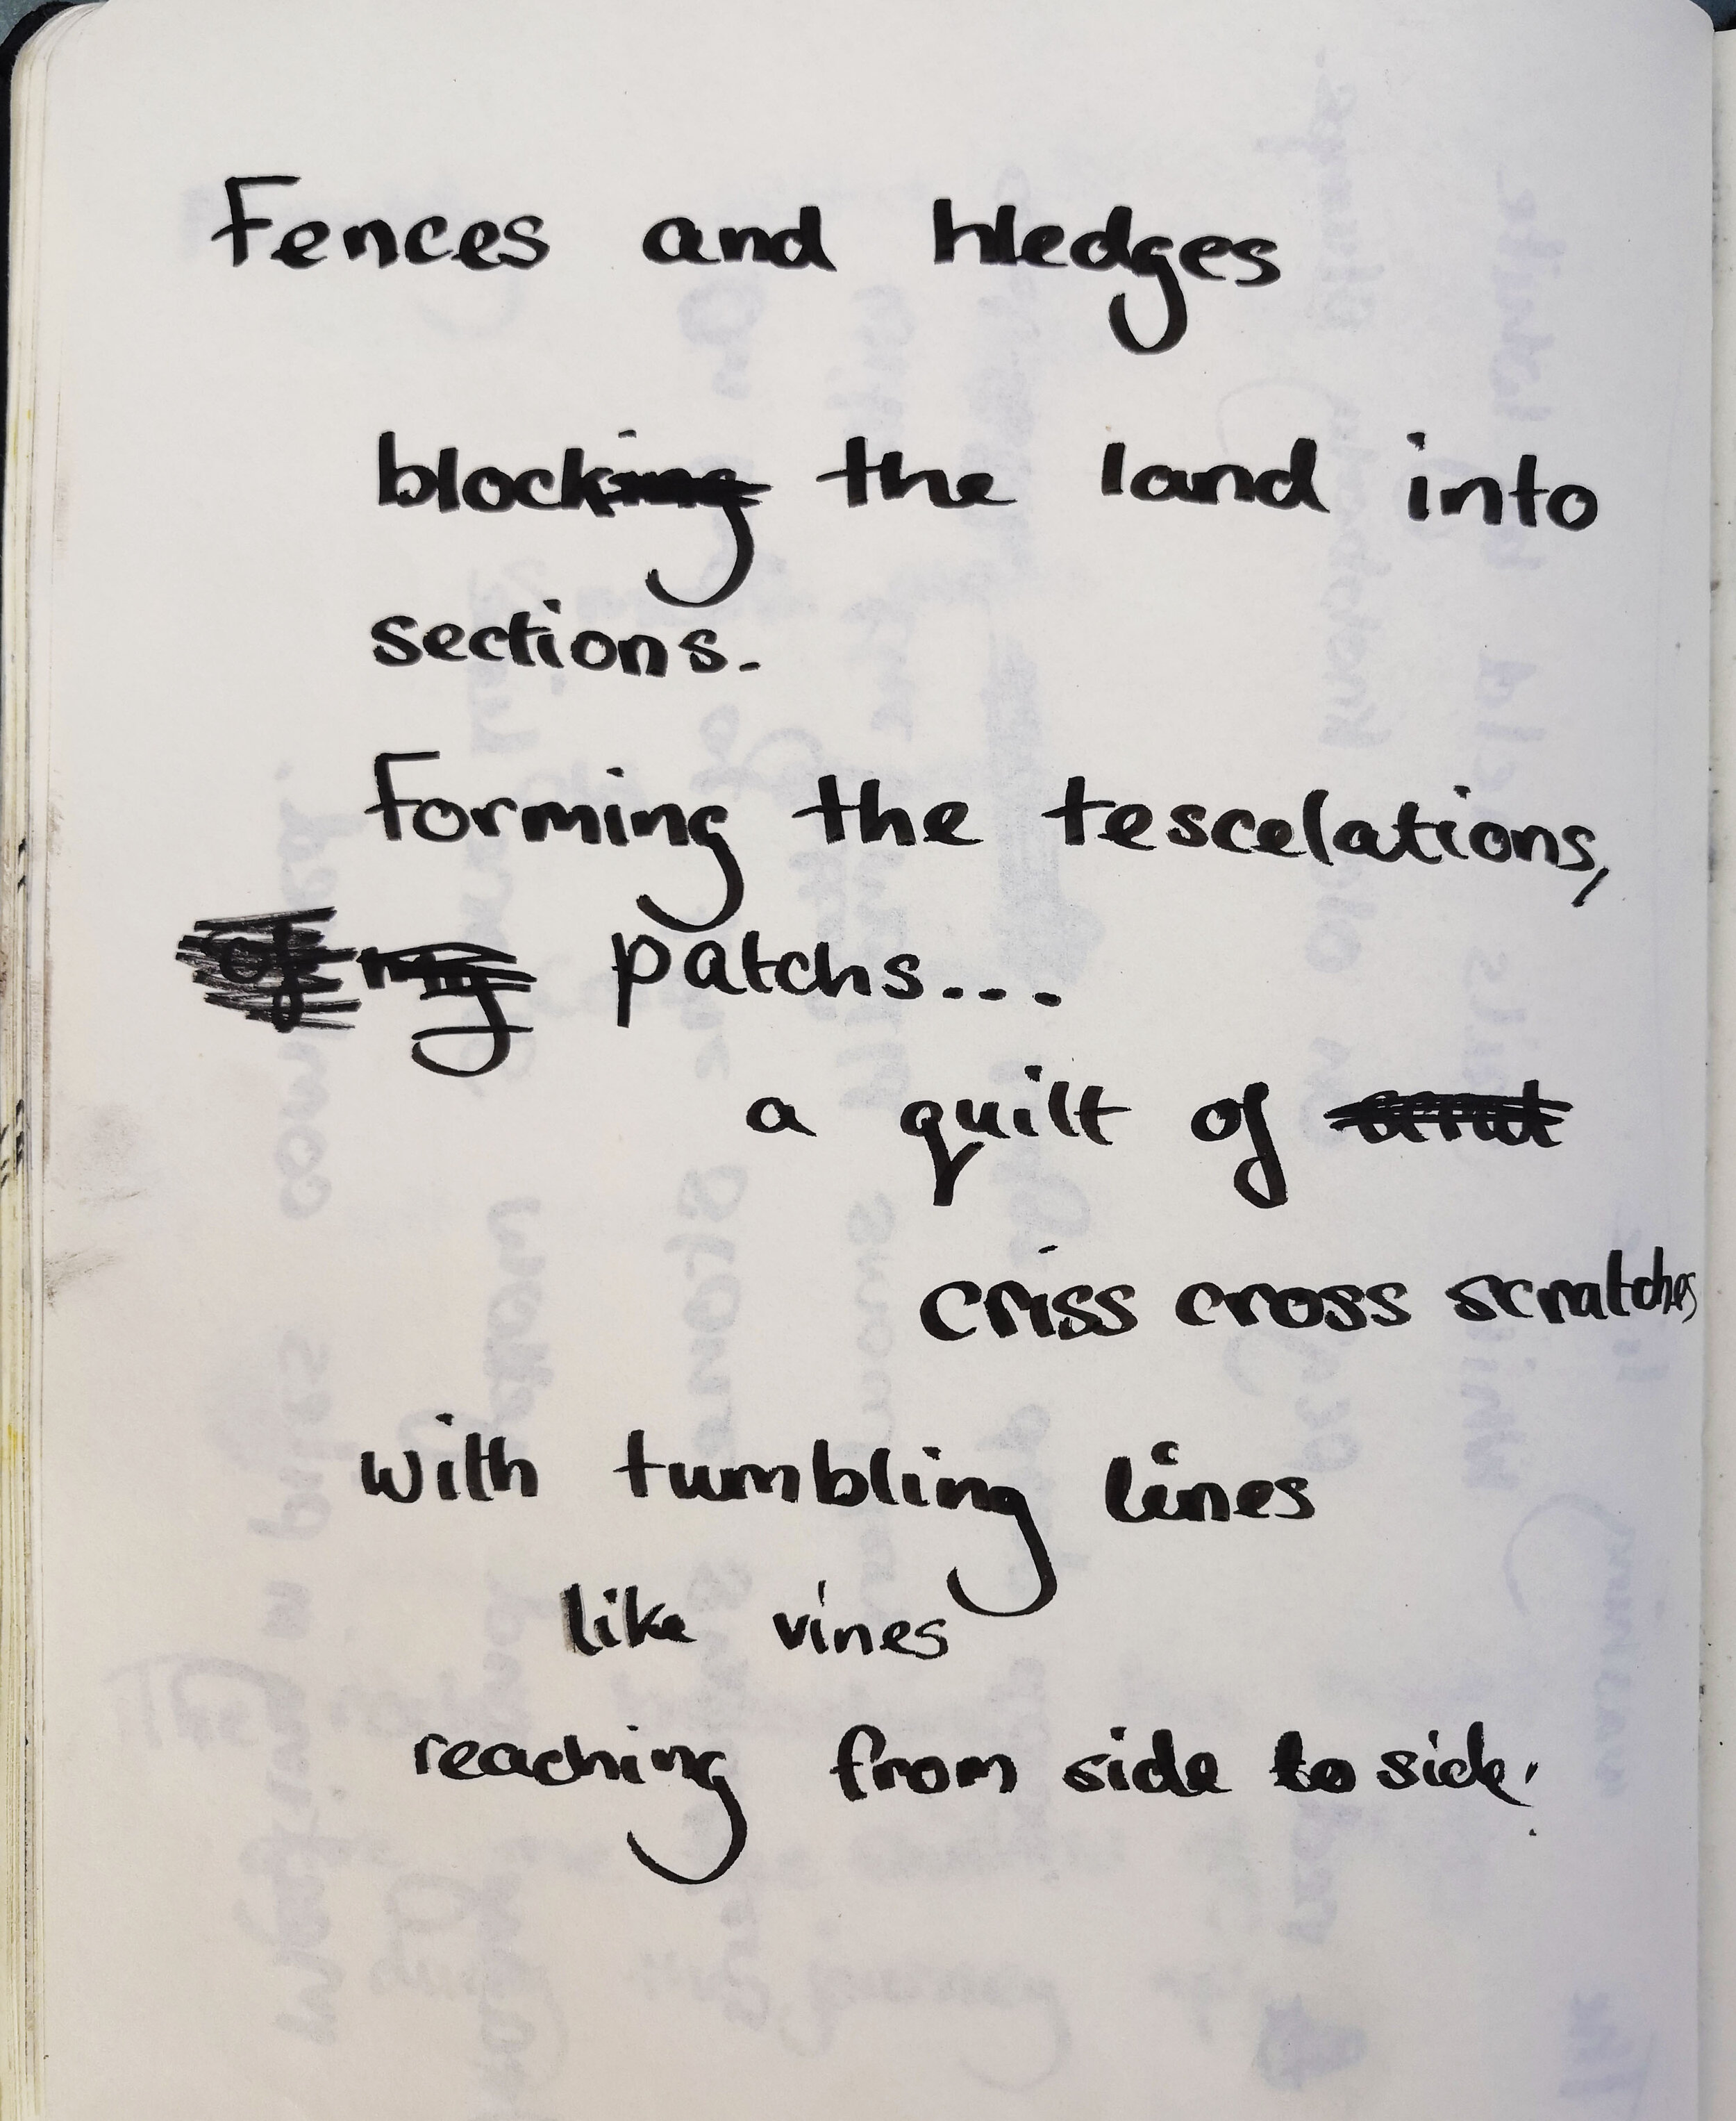 Fences and Hedges
block the land into
sections.
Forming the tescelations,
patchs...
a quilt of
criss cross scratches
with tumbling lines
like vines
reaching from side to side.